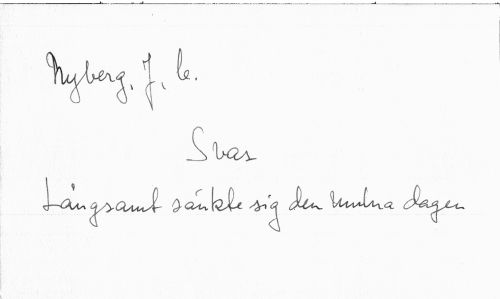 Nyberg, J. C.
Svar
Långsamt sänkte sig den mulna dagen